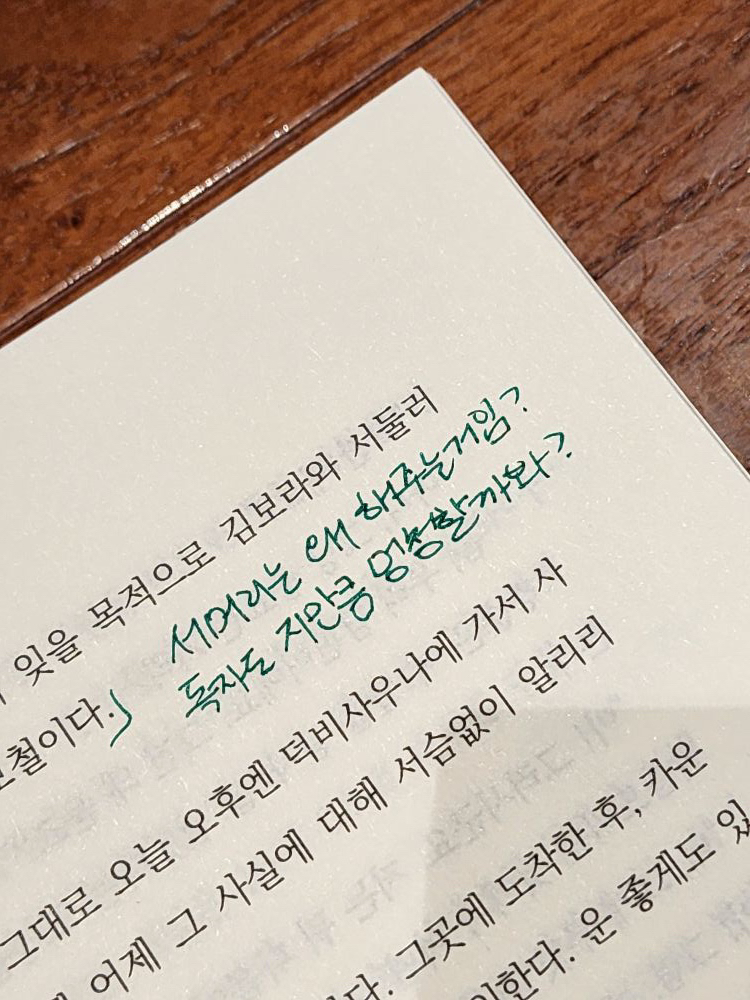 잊을 목적으로 김보라와 서둘러
써머리는 왜 해주는거임?
독자도 지만큼 멍청할까봐?
철이다.」
그대로 오늘 오후엔 덕비사우나에 가서 사
어제 그 사실에 대해 서슴없이 알리리
다. 그곳에 도착한 후, 카운
한다. 운 좋게도 있